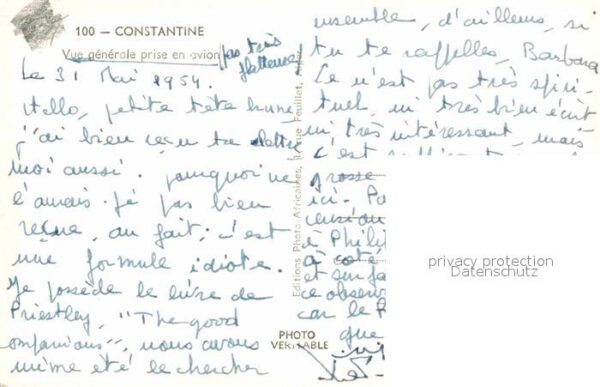 100 — CONSTANTINE
Vue générale prise en avion
pas très
flatteuse
Le 31 Mai 1954.
Hello, petite tête brune,
j'ai bien reçu ta lettre
moi aussi. pourquoi ne
l'aurais-je pas bien
reçue, au fait; c'est
une formule idiote.
Je possède le livre de
Priestley, "The good
companions", nous avons
même été le chercher
Editions Photo-Africaines, Feuillet, Alger
PHOTO
VERITABLE
ensemble, d'ailleurs, si
tu te rappelles, Barbara
Ce n'est pas très spiri-
tuel, ni très bien écrit
ni très intéressant, mais
c'est
grosse
ici.
à Phili
à côté
et sur
ce observ
car le
que
privacy protection
Datenschutz